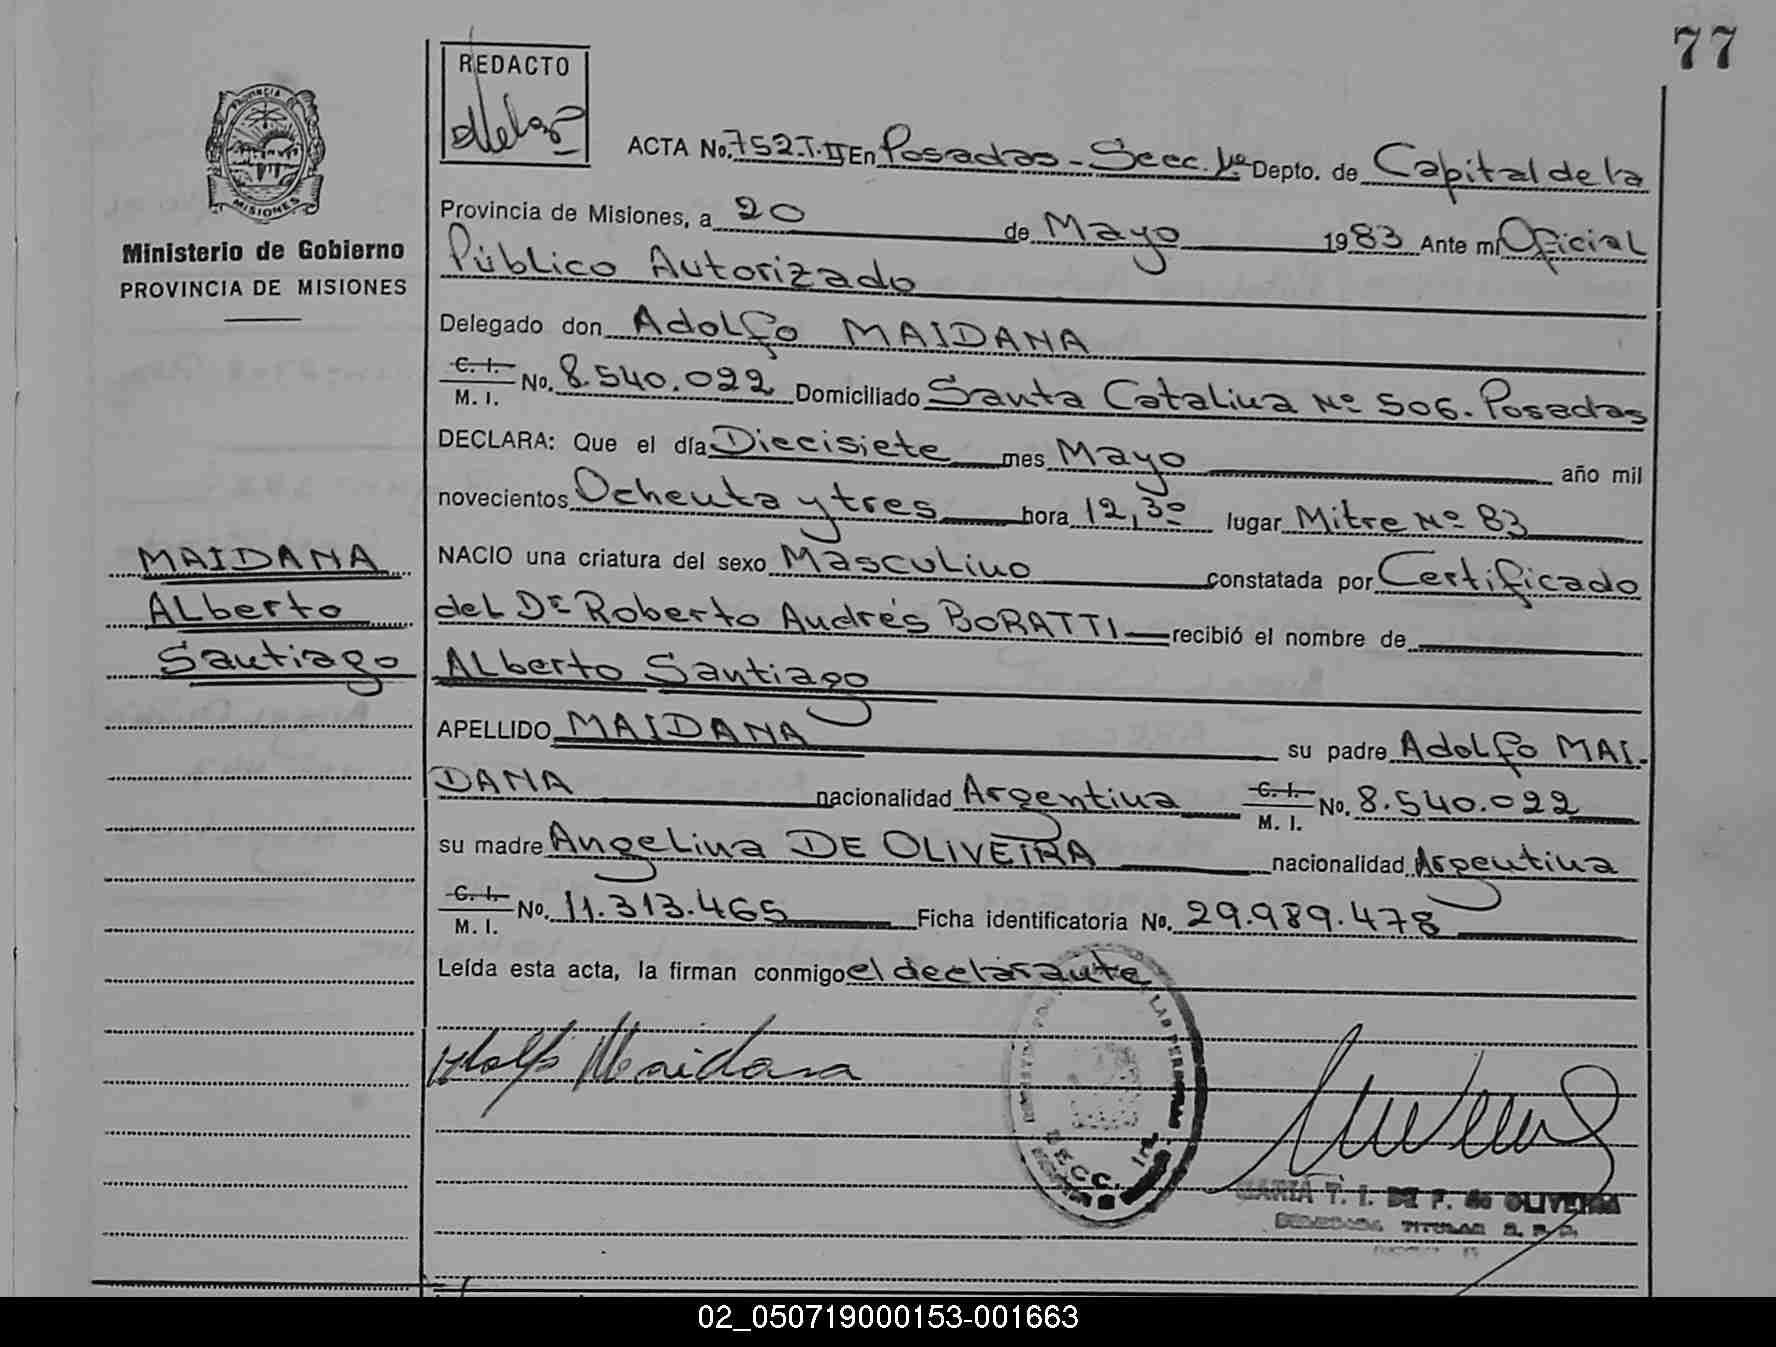 77
REDACTO
PROVINCIA DE
MISIONES
Ministerio de Gobierno
PROVINCIA DE MISIONES
ACTA No. 752.T.II En Posadas - Secc. 1ª Depto. de Capital de la
Provincia de Misiones, a 20 de Mayo 1983 Ante mí Oficial
Público Autorizado
Delegado don Adolfo MAIDANA
C. I. M. I. No. 8.540.022 Domiciliado Santa Catalina Nº 506. Posadas
DECLARA: Que el día Diecisiete mes Mayo año mil
novecientos Ochenta y tres hora 12,30 lugar Mitre Nº 83
NACIO una criatura del sexo Masculino constatada por Certificado
del Dr Roberto Andrés BORATTI recibió el nombre de
Alberto Santiago
APELLIDO MAIDANA su padre Adolfo MAI-
DANA nacionalidad Argentina C. I. M. I. No. 8.540.022
su madre Angelina DE OLIVEIRA nacionalidad Argentina
C. I. M. I. No. 11.313.465 Ficha identificatoria No. 29.989.478
Leída esta acta, la firman conmigo el declarante
MAIDANA
Alberto
Santiago
Adolfo Maidana
LAS PERSONAS
SECC. 1ra
MARIA T. I. DE F. de OLIVEIRA
TITULAR
02_050719000153-001663